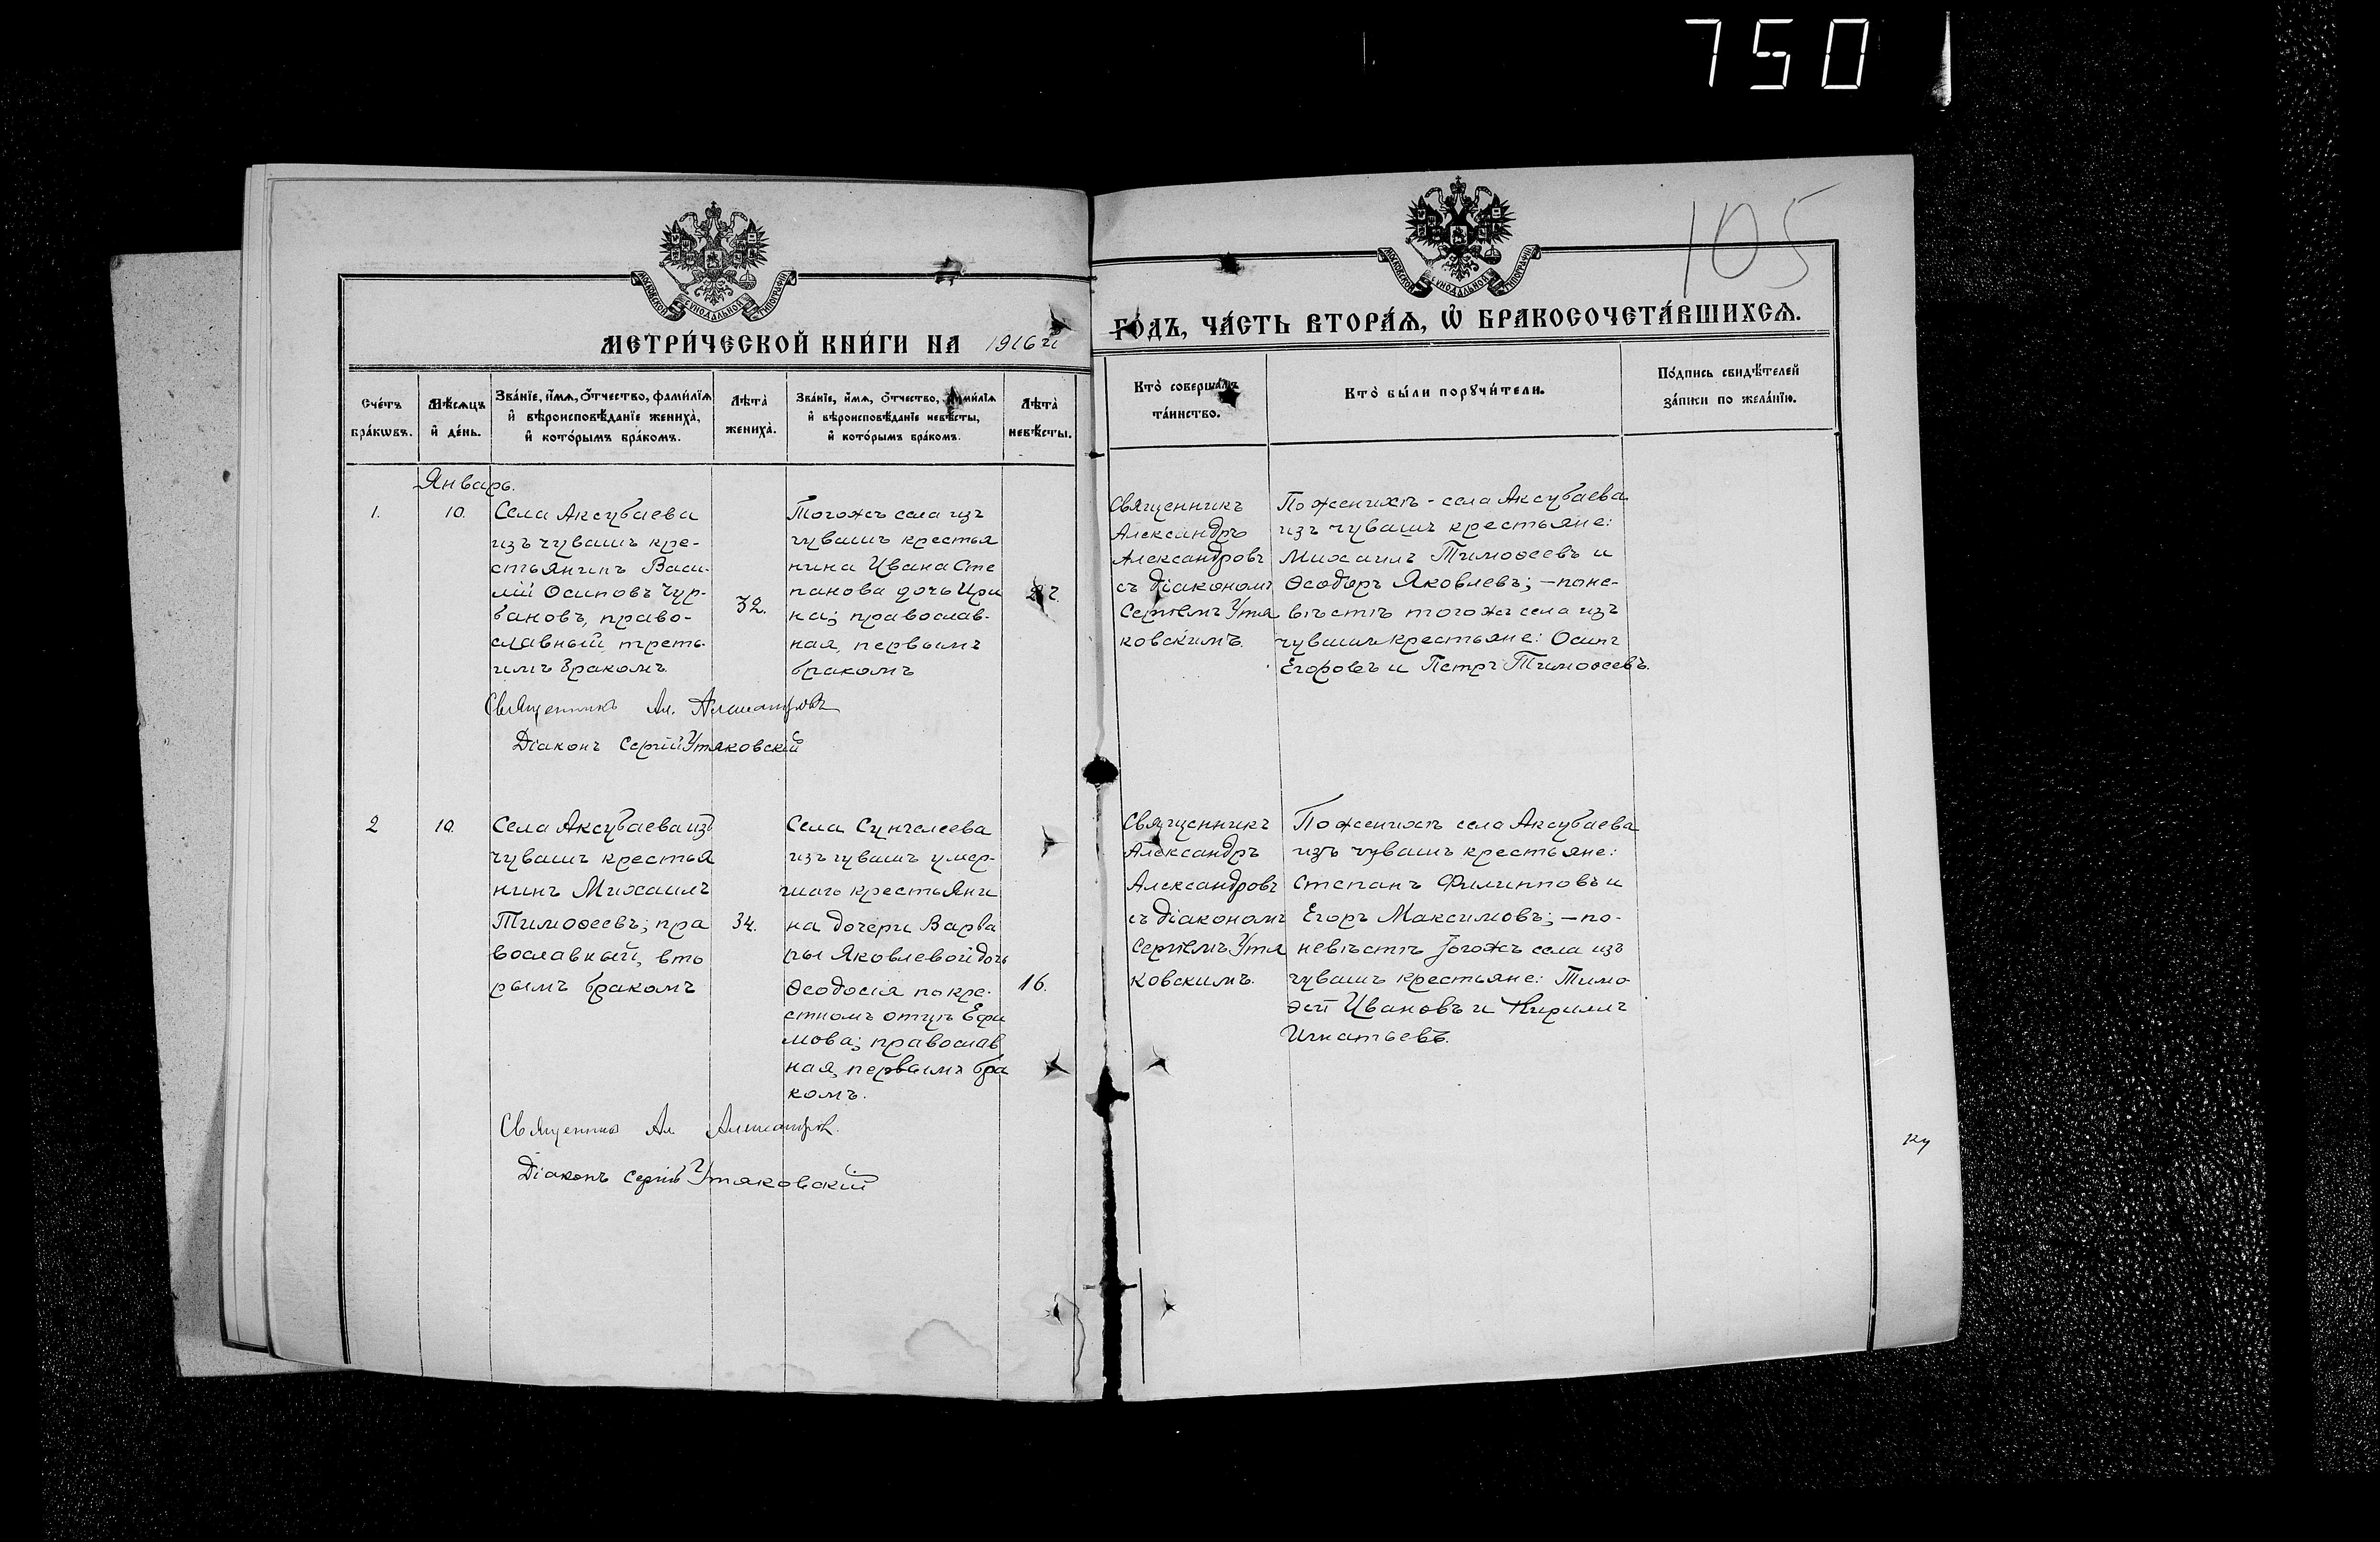 750
105
МОСКОВСКОЙ СѴНОДАЛЬНОЙ ТИПОГРАФІИ
МОСКОВСКОЙ СѴНОДАЛЬНОЙ ТИПОГРАФІИ
МЕТРИ́ЧЕСКОЙ КНИ́ГИ НА 1916 й
ГО́ДЪ, ЧА́СТЬ ВТОРА́Ѧ, Ѡ҆ БРАКОСОЧЕТА́ВШИХСѦ.
Сче́тъ
бра́кѡвъ.
Мѣ́сѧцъ
и҆ де́нь.
Зва́нїе, и҆́мѧ, ѻ҆́тчество, фами́лїѧ
и҆ вѣроисповѣ́данїе жениха̀,
и҆ кото́рымъ бра́комъ.
Лѣта̀
жениха̀.
Зва́нїе, и҆́мѧ, ѻ҆́тчество, фами́лїѧ
и҆ вѣроисповѣ́данїе невѣ́сты,
и҆ кото́рымъ бра́комъ.
Лѣта̀
невѣ́сты.
Кто̀ соверша́лъ
та́инство.
Кто̀ бы́ли порꙋчи́тели.
По́дпись свидѣ́телей
за́писи по жела́нїю.
Январь.
1.
10.
Села Аксубаева
изъ чувашъ кре-
стьянинъ Васи-
лій Осиповъ Чур-
бановъ, право-
славный, треть-
имъ бракомъ
32.
Тогожъ села изъ
чувашъ крестья
нина Ивана Сте
панова дочь Ири
на; православ-
ная, первымъ
бракомъ
Священникъ
Александръ
Александровъ
съ діакономъ
Сергіемъ Утя
ковскимъ.
По женихѣ - села Аксубаева
изъ чувашъ крестьяне:
Михаилъ Тимоѳеевъ и
Ѳеодоръ Яковлевъ; - поне-
вѣстѣ тогожъ села изъ
чувашъ крестьяне: Осипъ
Егоровъ и Петръ Тимоѳеевъ.
Священникъ Ал. Александровъ
Діаконъ Сергій Утяковскій
2
10.
Села Аксубаева изъ
чувашъ крестья
нинъ Михаилъ
Тимоѳеевъ; пра
вославный, вто
рымъ бракомъ
34.
Села Сунчелеева
изъ чувашъ умер-
шаго крестьяни
на дочери Варва
ры Яковлевой дочь
Ѳеодосія по кре-
стномъ отцѣ Ефи
мова; православ
ная, первымъ бра
комъ.
16.
Священникъ
Александръ
Александровъ
съ діакономъ
Сергіемъ Утя
ковскимъ.
По женихѣ села Аксубаева
изъ чувашъ крестьяне:
Степанъ Филипповъ и
Егоръ Максимовъ; - по-
невѣстѣ тогожъ села изъ
чувашъ крестьяне: Тимо
ѳей Ивановъ и Кириллъ
Игнатьевъ.
Священникъ Ал Александровъ.
Діаконъ Сергій Утяковскій